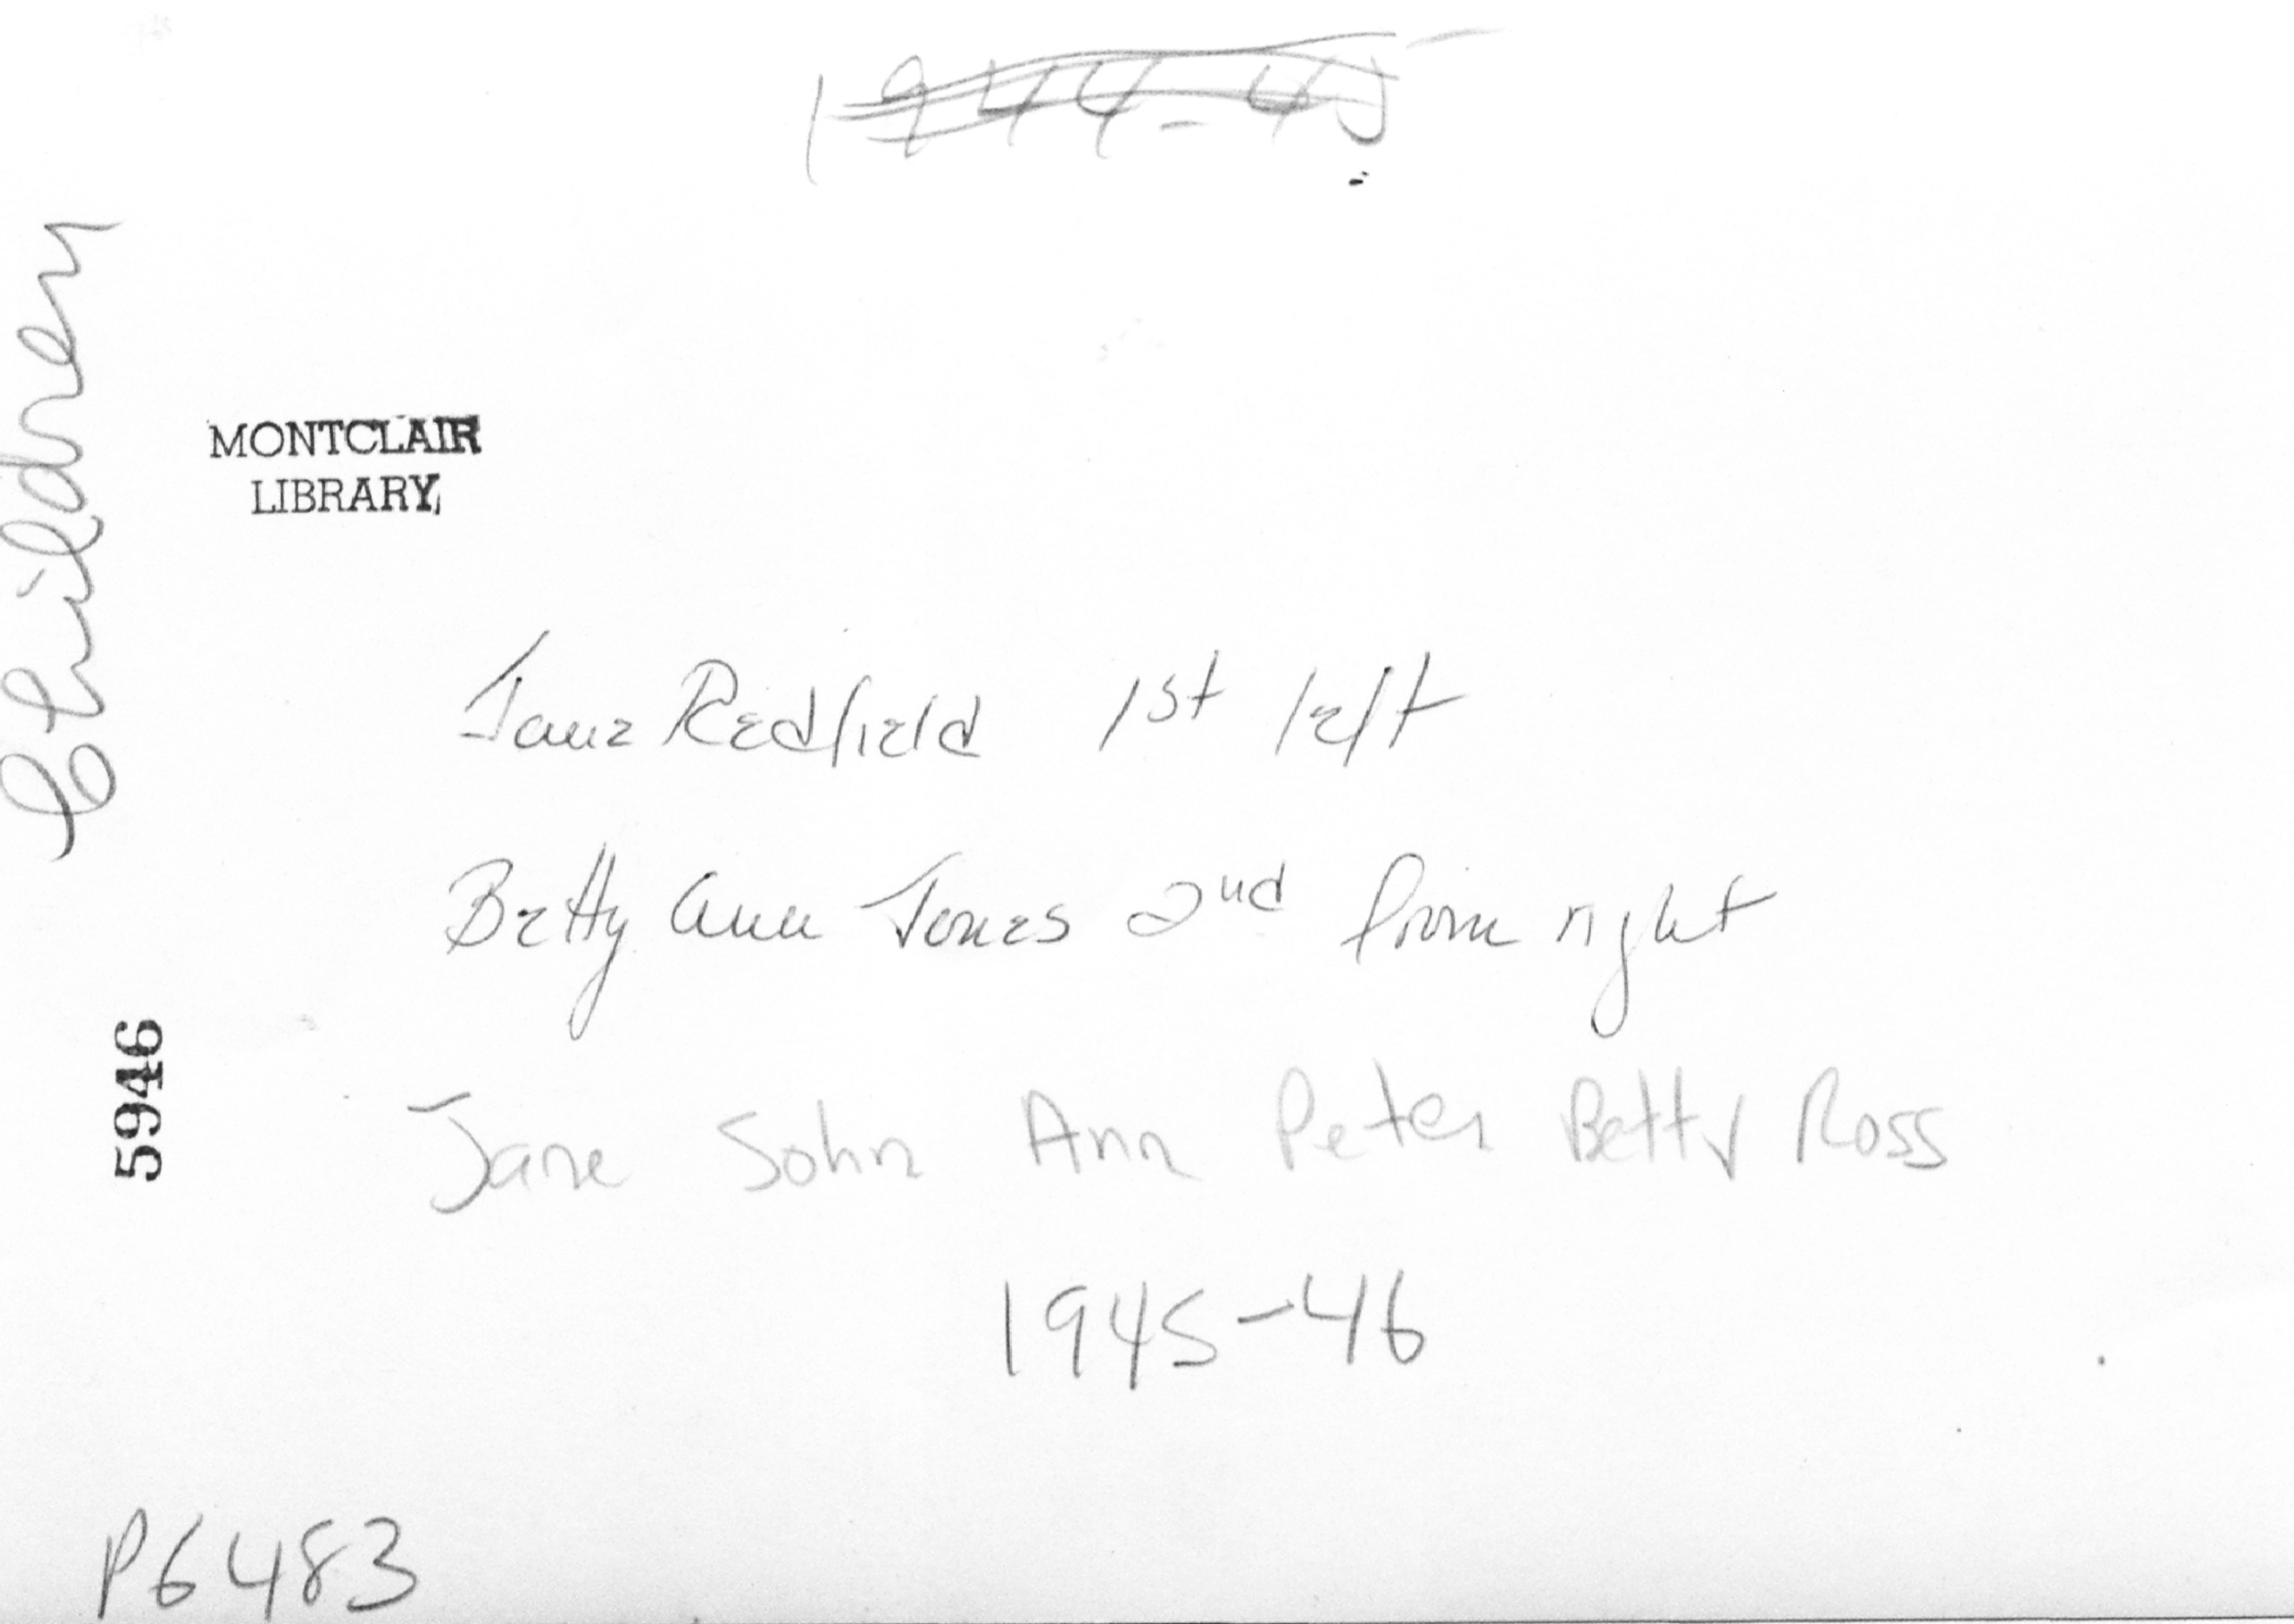 1944-45
Children
MONTCLAIR
LIBRARY
Jane Redfield 1st left
Betty Ann Jones 2nd from right
5946
Jane John Ann Peter Betty Ross
1945-46
P6483